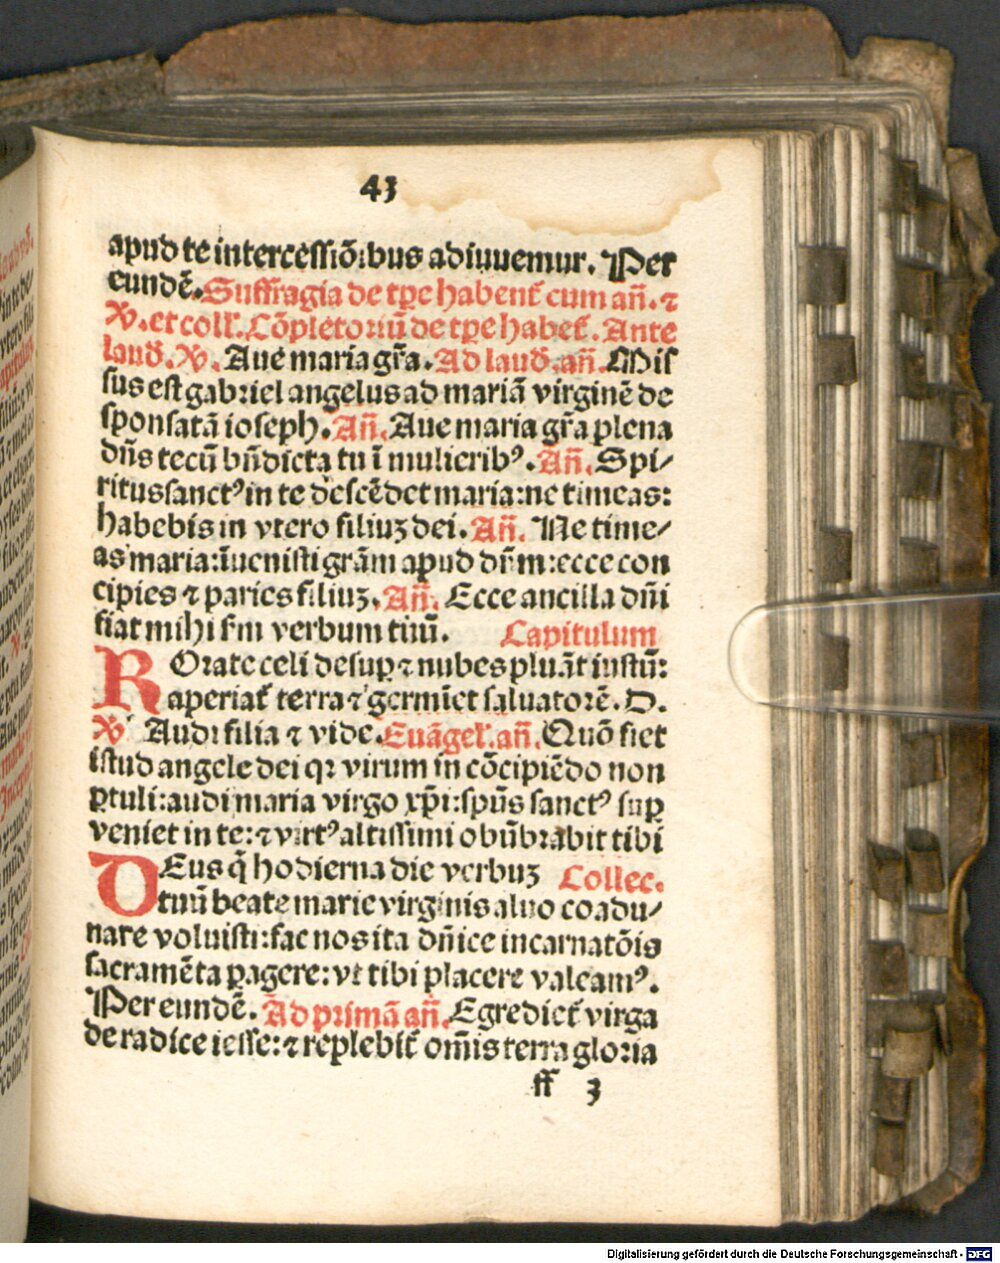 43
apud te intercessiōibus adiuuemur. Per
eundē. Suffragia de tp̄e habent̄ cum an̄. ⁊
℣. et coll'. Cōpletoriū de tp̄e habet̄. Ante
laud̄. ℣. Aue maria gr̄a. Ad laud̄. an̄. Mis
sus est gabriel angelus ad mariā virginē de
sponsatā ioseph. An̄. Aue maria gr̄a plena
dn̄s tecū bn̄dicta tu ī mulierib⁹. An̄. Spi/
ritussanct⁹ in te descēdet maria: ne timeas:
habebis in vtero filiuȝ dei. An̄. Ne time/
as maria: īuenisti grām apud dn̄m: ecce con
cipies ⁊ paries filiuȝ. An̄. Ecce ancilla dn̄i
fiat mihi fm verbum tuū. Capitulum
ROrate celi desuꝑ ⁊ nubes pluāt iustū:
aperiat̄ terra ⁊ germīet saluatorē. D.
℣ Audi filia ⁊ vide. Euāgel'. an̄. Quō fiet
istud angele dei qꝛ virum in cōcipiēdo non
ꝑtuli: audi maria virgo xp̄i: spūs sanct⁹ suꝑ
veniet in te: ⁊ virt⁹ altissimi obūbrabit tibi
DEus q̄ hodierna die verbuȝ Collec.
tuū beate marie virginis aluo coadu/
nare voluisti: fac nos ita dn̄ice incarnatōis
sacramēta ꝑagere: vt tibi placere valeam⁹.
Per eundē. Ad primā an̄. Egrediet̄ virga
de radice iesse: ⁊ replebit̄ om̄is terra gloria
ff 3
Digitalisierung gefördert durch die Deutsche Forschungsgemeinschaft - DFG